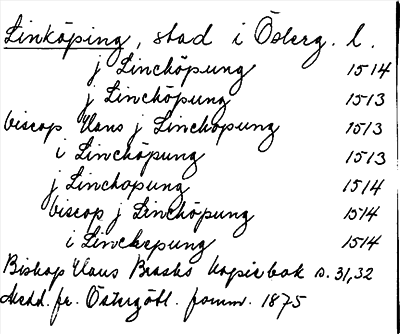 Linköping, stad i Österg. l.
j Linchöpung 1514
j Linchöpung 1513
biscop Hans j Linchopung 1513
i Linchöpung 1513
j Linchopung 1514
biscop j Linchöpung 1514
i Linckepung 1514
Biskop Hans Brasks kopiebok s. 31,32
Medd. fr. Östergötl. fornm. 1875